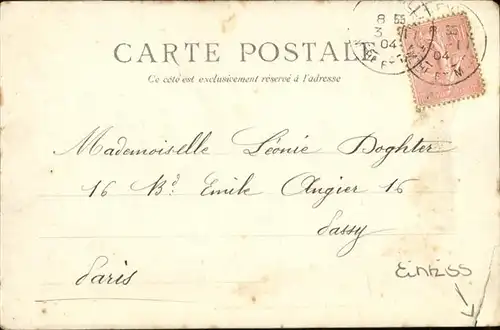 8 55
3 - 1
04
CARTE POSTALE
Ce côté est exclusivement réservé à l'adresse
Mademoiselle Léonie Doghter
16 Bd. Emile Augier 16
Passy
Paris
Einriss